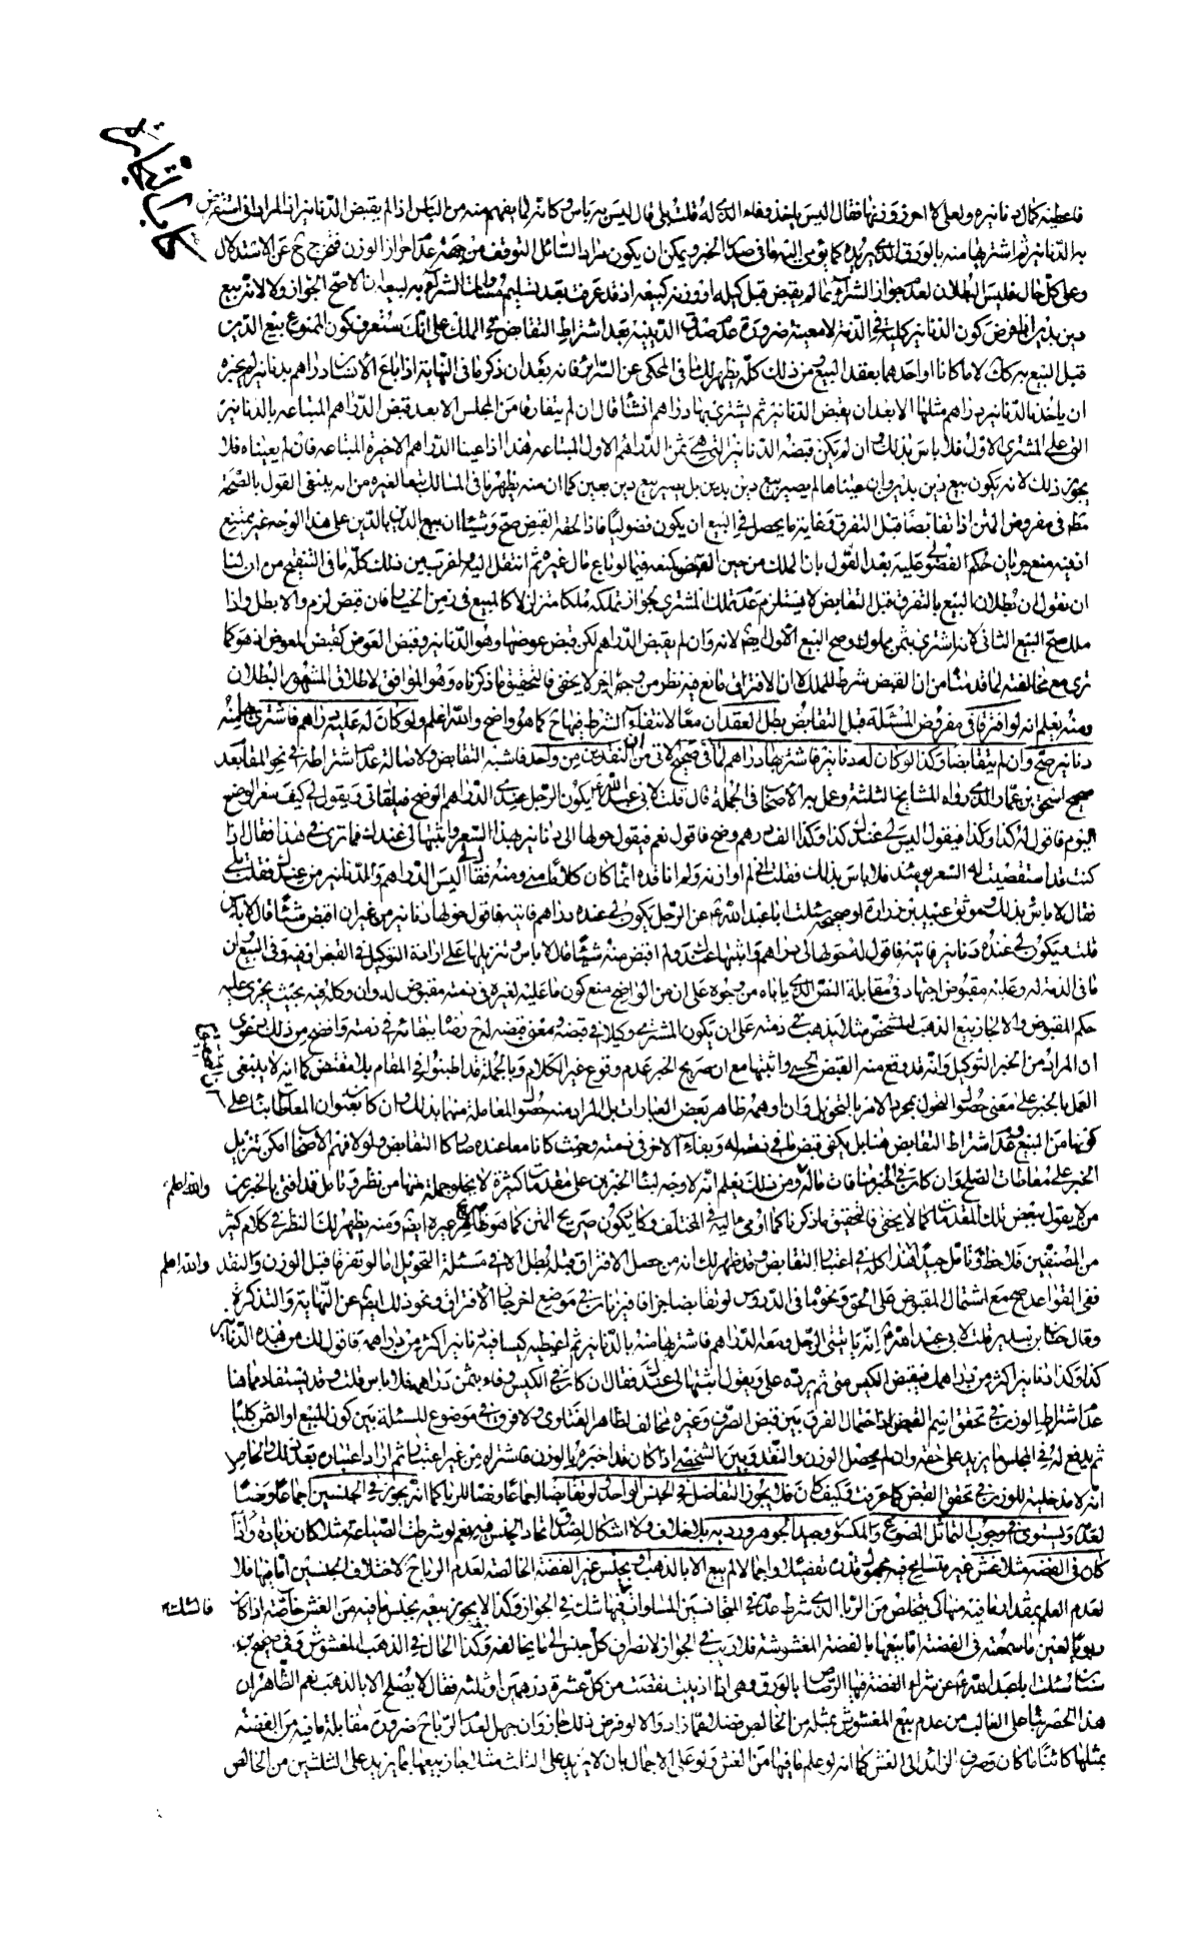 كتاب التجارة
فاعطيته كمال دنانيره ولعلى لا احرز وزنها فقال اليس ياخذ وفاء الذى له قلت بلى قال ليس به باس وكانه لما يفهم منه من الباس اذا لم يقبض الدنانير
به الدنانير ثم اشتراها منه بالورق الذى يريده كما يؤمى اليه ما فى صدر الخبر ويمكن ان يكون مراد السائل التوقف من جهة عدم احراز الوزن فتخرج ح عن الاستدلال
وعلى كل حال فليس البطلان لعدم جواز الشراء بما لم يقبض قبل كيله او وزنه كبيعه اذ قد عرفت بعد تسليم مساوات الشراء به لبيعه ان الاصح الجواز ولا لانه بيع
دين بدين اذ الفرض كون الدنانير كلية فى الذمة لا معينة ضرورة عدم صدق الدينية بعد اشتراط التقابض فى الملك على انك ستعرف كون الممنوع بيع الدين
قبل البيع به كك لا ما كانا او احدهما بعقد البيع ومن ذلك كله يظهر لك ما فى المحكى عن السرائر فانه بعد ان ذكر ما فى النهاية اذا باع الانسان دراهم بدنانير لم يجز له
ان ياخذ بالدنانير دراهم مثلها الا بعد ان يقبض الدنانير ثم يشترى بها دراهم انشاء قال ان لم يتفارقا من المجلس الا بعد قبض الدراهم المبتاعة بالدنانير
التى على المشترى الاول فلا باس بذلك وان لم يكن قبضه الدنانير التى هى ثمن الدراهم الاولى المبتاعة هذا اذا عينا الدراهم الاخيرة المبتاعة فان لم يعيناه فلا
يجوز ذلك لانه يكون بيع دين بدين وان عيناها لم يصير بيع دين بدين بل يصير بيع دين بعين كما ان منه يظهر ما فى المسالك تبعا لغيره من انه ينبغى القول بالصحة
مط فى مفروض المتن اذا تقابضا قبل التفرق وغاية ما يحصل فى البيع ان يكون فضوليا فاذا لحقه القبض صح وشيئا ان بيع الدين بالدين على هذا الوجه غير ممتنع
اذ فيه منع جريان حكم الفضولى عليه بعد القول بان الملك من حين القبض كمنعه فيما لو باع مال غيره ثم انتقل اليه واغرب من ذلك كله ما فى التنقيح من ان لنا
ان نقول ان بطلان البيع بالتفرق قبل التقابض لا يستلزم عدم تملك المشترى لجواز تملكه ملكا متزلزلا كالمبيع فى زمن الخيار فان قبض لزم والا بطل واذا
ملك صح البيع الثانى لانه اشترى بثمن مملوك وصح البيع الاول ايضا لانه وان لم يقبض الدراهم لكن قبض عوضها وهو الدنانير وقبض العوض كقبض المعوض اذ هو كما
ترى مع مخالفته لما قدمنا من ان القبض شرط للملك لا ان الافتراق مانع فيه نظر من وجه اخر لا يخفى فالتحقيق ما ذكرناه وهو الموافق لاطلاق المشهور البطلان
ومنه يعلم انه لو افترقا فى مفروض المسئلة قبل التقابض بطل العقدان معا لانتفاء الشرط فيهما ح كما هو واضح والله اعلم ولو كان له عليه دراهم فاشترى بها منه
دنانير صح وان لم يتقابضا وكذا لو كان له دنانير فاشترى بها دراهم لما فى صحيح الاتى من ان النقدين من واحد فاشبه التقابض ولاصالة عدم اشتراطه فى نحو المقام بعد
صحيح اسحق بن عمار الذى رواه المشايخ الثلثة وعمل به الاصحاب فى الجملة قال قلت لابى عبد الله ع يكون للرجل عندى الدراهم الوضح فيلقانى ويقول لى كيف سعر الوضح
اليوم فاقول له كذا وكذا فيقول اليس لى عندك كذا وكذا الف درهم وضح فاقول نعم فيقول حولها الى دنانير بهذا السعر واثبتها لى عندك فما ترى فى هذا فقال اذا
كنت قد استقصيت له السعر يومئذ فلا باس بذلك فقلت انى لم اوازنه ولم اناقده انما كان كلام منى ومنه فقال اليس الدراهم والدنانير من عندك فقلت بلى
فقال لا باس بذلك وموثق عبيد بن زرارة او صحيحه سئلت ابا عبد الله ع عن الرجل يكون لى عنده دراهم فاتيه فاقول حولها دنانير من غير ان اقبض شيئا قال لا باس
قلت ويكون لى عنده دنانير فاتيه فاقول له حولها لى دراهم واثبتها عندك ولم اقبض منه شيئا قال لا باس وتنزيلها على ارادة التوكيل فى القبض او فيه وفى البيع وان
ما فى الذمة له وعليه مقبوض اجتهاد فى مقابلة النص الذى ياباه من وجوه على ان من الواضح منع كون ما عليه لغيره فى ذمته مقبوض له وان وكله فيه بحيث يجرى عليه
حكم المقبوض والا لجاز بيع الذهب المشخص مثلا بذهب فى ذمته على ان يكون المشترى وكيلا فى قبضه ومعنى قبضه له ح رضا ببقائه فى ذمته واضح من ذلك دعوى
ان المراد من الخبر التوكيل وانه قد وقع منه القبض الحسى واثبتها مع ان صريح الخبر عدم وقوع غير الكلام وبالجملة قد اطنبوا فى المقام بلا مقتض كما انه لا ينبغى
العمل بالخبر على معنى حصول التحول بمجرد الامر بالتحويل وان اوهمه ظاهر بعض العبارات بل المراد منه حصول المعاملة منهما بذلك وان كانت بعنوان المعاطات بناء على
كونها من البيع وعدم اشتراط التقابض هنا بل يكفى قبض ما فى ذمته له وبقاء الاخر فى ذمته وحيث كانا معا عنده صار كالتقابض ولولا فهم الاصحاب امكن تنزيل
الخبر على معاطات الصلح وان كان فى الخبر منافات ما له ومن ذلك يعلم انه لا وجه لبناء الخبرين على مقدمات كثيرة لا يخلو جملة منها من نظر وتامل قد افتى بالخبرين
من لا يقول ببعض تلك المقدمات كما لا يخفى فالتحقيق ما ذكرنا كما اومى اليه فى المختلف وكاد يكون صريح المتن كما هو ظاهر غيره ايضا ومنه يظهر لك النظر فى كلام كثير
من المصنفين فلاحظ وتامل جيدا هذا كله فى اعتبار التقابض وقد ظهر لك انه من حصل الافتراق قبله بطل الا فى مسئلة التحويل اما لو تفرقا قبل الوزن والنقد
ففى القواعد صح مع اشتمال المقبوض على الحق ونحوه ما فى الدروس لو تقابضا جزافا فيزناه فى موضع اخر جاز الافتراق ونحو ذلك ايضا عن النهاية والتذكرة
وقال حنان بن سدير قلت لابى عبد الله ع انه ياتينى الرجل ومعه الدراهم فاشتريها منه بالدنانير ثم اعطيه كيسا فيه دنانير اكثر من دراهمه فاقول لك من هذه الدنانير
كذا وكذا دنانير اكثر من دراهمك فيقبض الكيس منى ثم يرده على ويقول اثبتها لى عندك فقال ان كان فى الكيس وفاء بثمن دراهمه فلا باس قلت وقد يستفاد مما هنا
عدم اشتراط الوزن فى تحقق اسم القبض اذ احتمال الفرق بين قبض الصرف وغيره مخالف لظاهر الفتاوى ولا فرق فى موضوع المسئلة بين كون المبيع او الثمن كليا
ثم يدفع له فى المجلس ما يزيد على حقه وان لم يحصل الوزن والنقد وبين الشخصى اذا كان قد اخبره بالوزن فاشتراه من غير اعتبار ثم اراد اعتباره بعد ذلك والحاصل
انه لا مدخلية للوزن فى تحقق القبض كما عرفت وكيف كان فلا يجوز التفاضل فى الجنس الواحد ولو تقابضا اجماعا ونصا للربا كما انه يجوز فى الجنسين اجماعا ونصا
لعدمه ويستوى فى وجوب التماثل المصوغ والمكسور وجيد الجوهر ورديه بلا خلاف ولا اشكال لصدق اتحاد الجنس فيه نعم لو شرطت الصياغة مثلا كان زيادة واذا
كان فى الفضة مثلا غش غير متسامح فيه مجهول قدره تفصيلا واجمالا لم يبع الا بالذهب او بجنس غير الفضة الخالصة لعدم الربا ح لاختلاف الجنسين اما بها فلا
لعدم العلم بمقدار ما فيه منها كى يتخلص من الربا الذى شرط عدمه فى المتجانسين المساوات فيهما شك فى الجواز وكذا لا يجوز بيعه بجنس ما فيه من الغش خاصة اذا كان
ربويا لعين ما سمعته فى الفضة اما بيعها بالفضة المغشوشة فلا ريب فى الجواز لانصراف كل جنس الى ما يخالفه وكذا الحال فى الذهب المغشوش وفى صحيح ابن
سنان سئلت ابا عبد الله ع عن شراء الفضة فيها الرصاص بالورق وهى اذا اذيبت نقصت من كل عشرة درهمين او ثلثه فقال لا يصلح الا بالذهب نعم الظاهر ان
هذا الحصر بناء على الغالب من عدم بيع المغشوش بمثله من الخالص فضلا عما زاد والا لو فرض ذلك جاز وان جهل لعدم الربا ح ضرورة مقابلة ما فيه من الفضة
بمثلها كائنا ما كان وصرف الزائد الى الغش كما انه لو علم ما فيها من الغش ولو على الاجمال بان لا يزيد على الثلث مثلا جاز بيعها بما يزيد على الثلثين من الخالص
والله اعلم
والله اعلم
فالشك